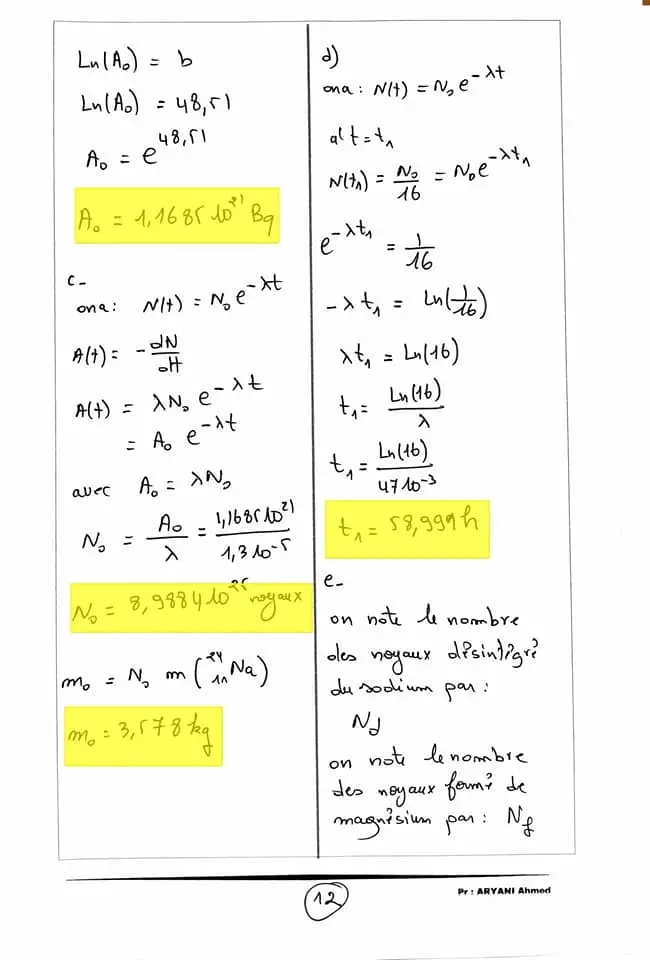 Ln(A₀) = b
Ln(A₀) = 48,51
A₀ = e^48,51
A₀ = 1,1685 10²¹ Bq
c-
ona : N(t) = N₀ e^-λt
A(t) = - dN/dt
A(t) = λN₀ e^-λt
= A₀ e^-λt
avec A₀ = λN₀
N₀ = A₀/λ = 1,1685 10²¹/1,3 10⁻⁵
N₀ = 8,9884 10²⁵ noyaux
m₀ = N₀ m(²⁴₁₁Na)
m₀ = 3,578 kg
d)
ona : N(t) = N₀ e^-λt
à t = t₁
N(t₁) = N₀/16 = N₀e^-λt₁
e^-λt₁ = 1/16
-λ t₁ = Ln(1/16)
λt₁ = Ln(16)
t₁ = Ln(16)/λ
t₁ = Ln(16)/47 10⁻³
t₁ = 58,999 h
e-
on note le nombre
des noyaux désintégré
du sodium par :
Nd
on note le nombre
des noyaux formé de
magnésium par : Nf
12
Pr : ARYANI Ahmed